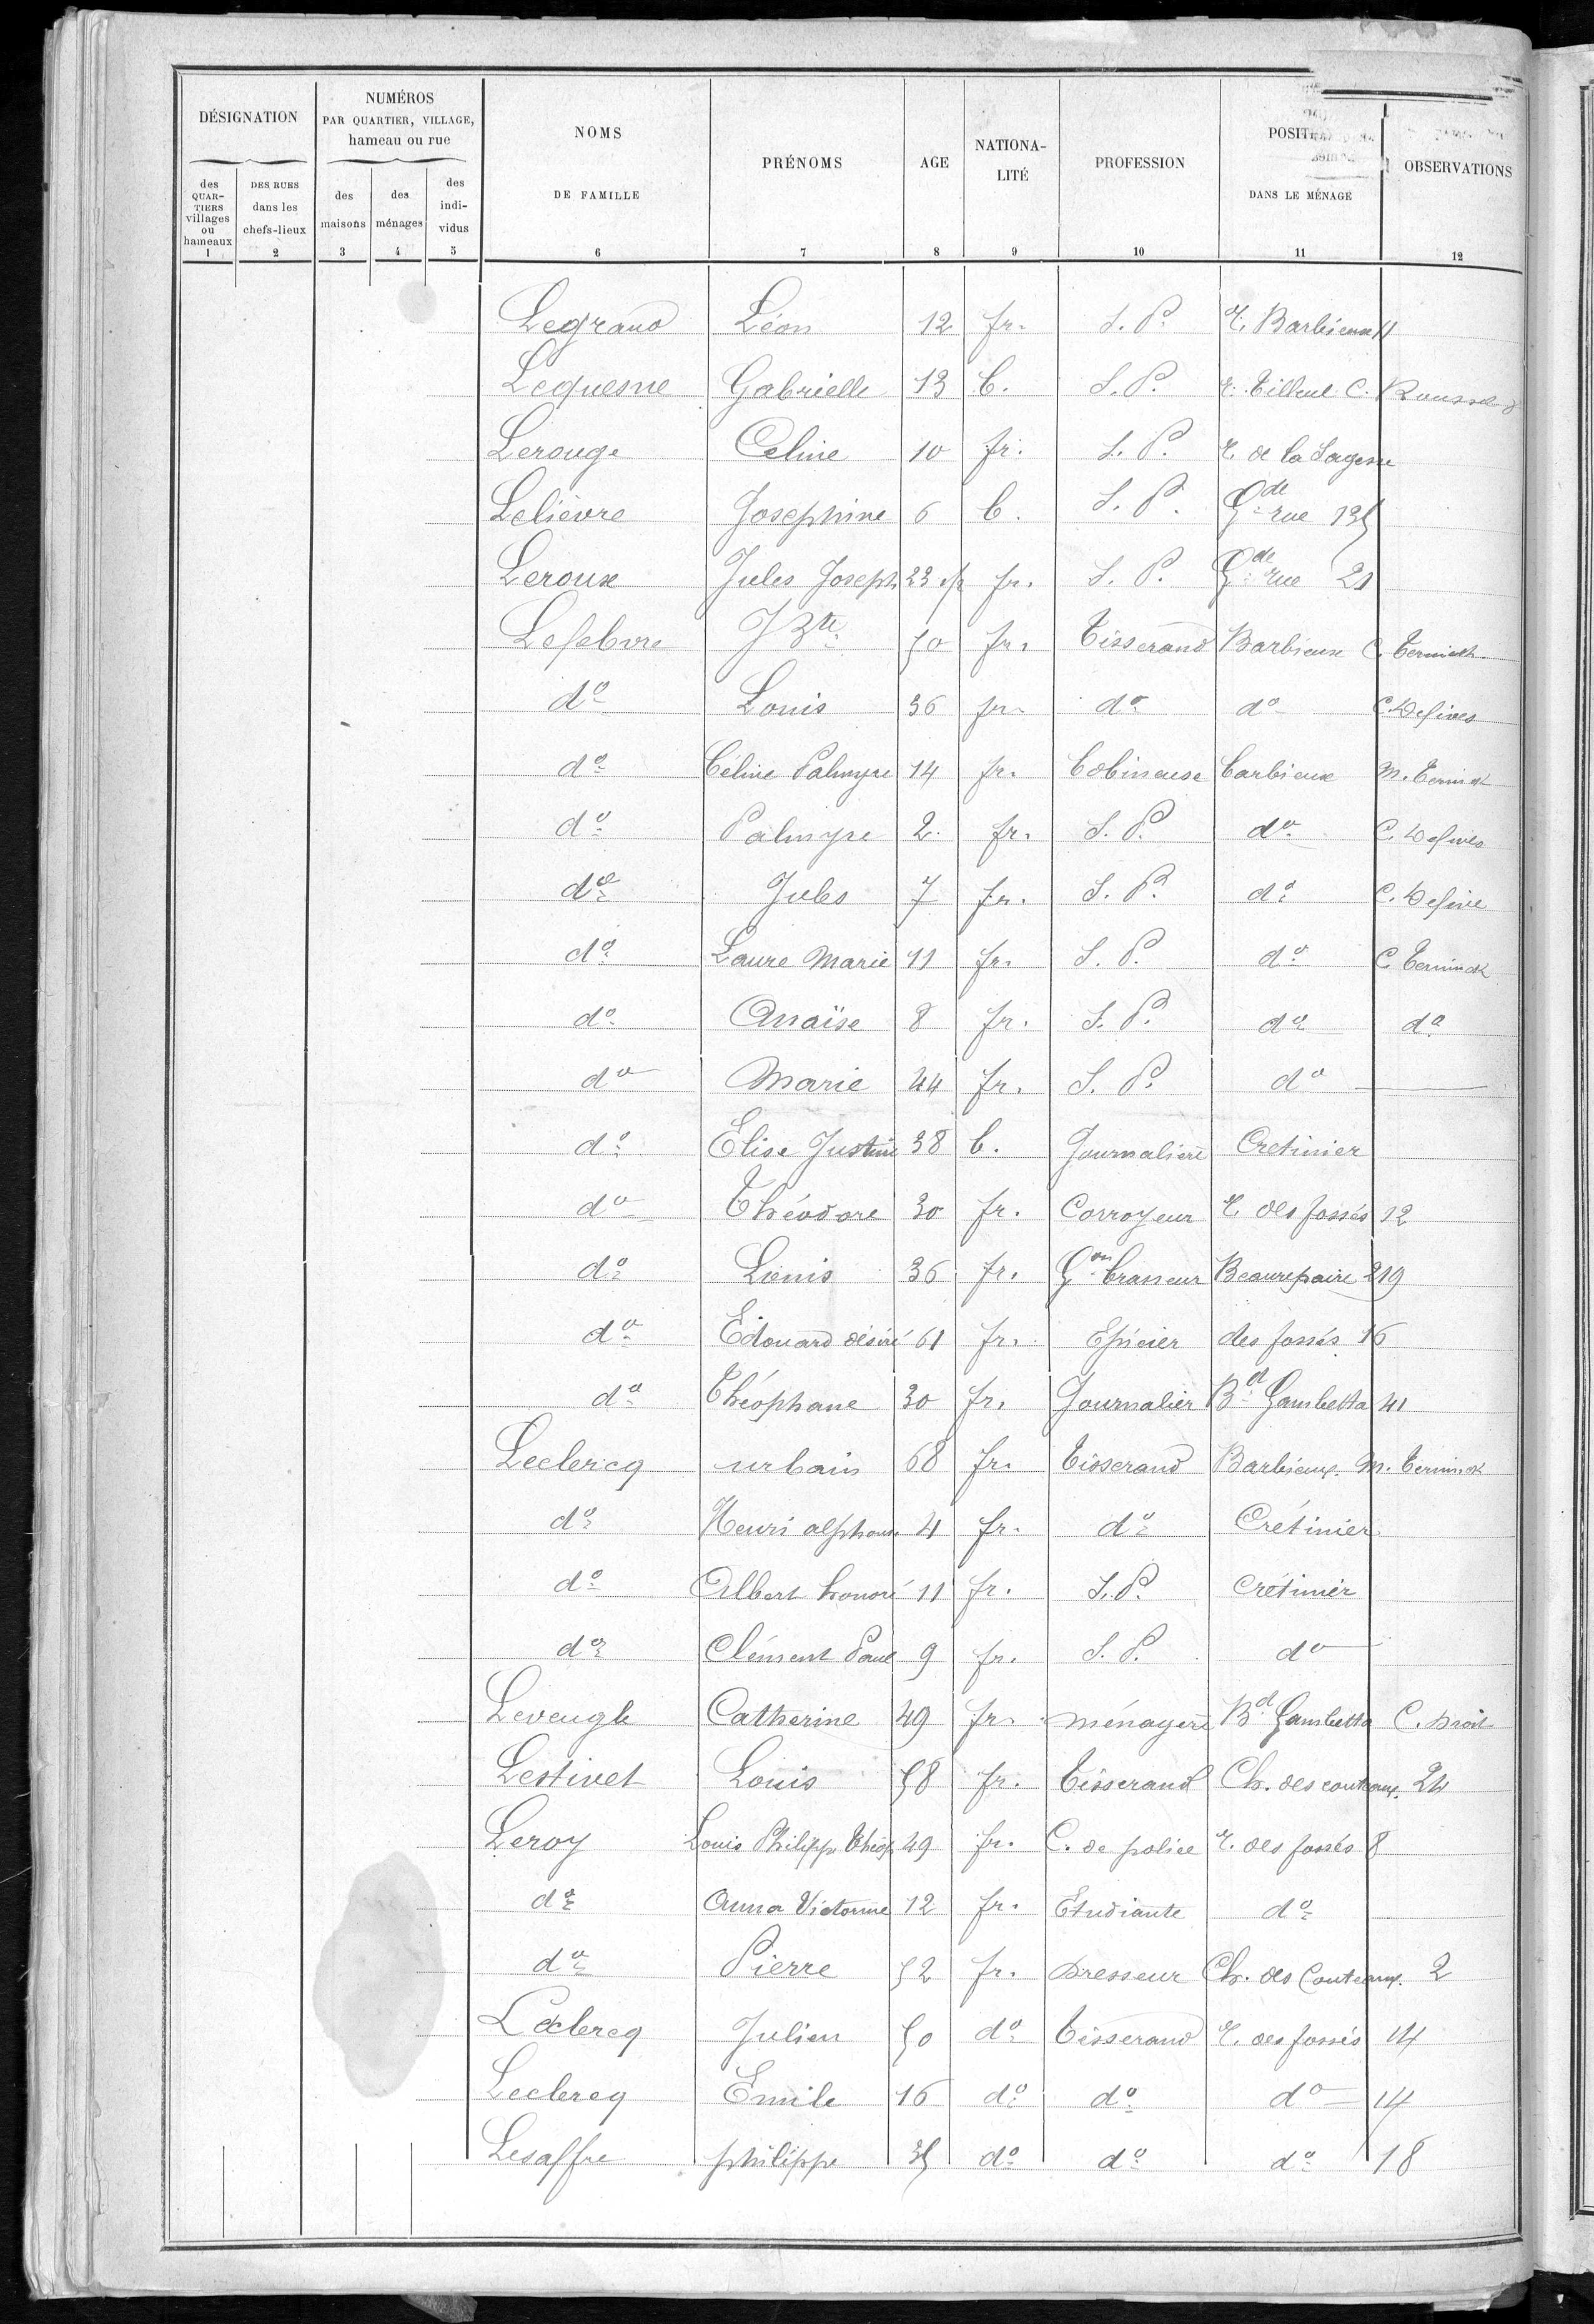 DÉSIGNATION
NUMÉROS
PAR QUARTIER, VILLAGE,
hameau ou rue
NOMS
DE FAMILLE
PRÉNOMS
AGE
NATIONA-
LITÉ
PROFESSION
POSIT
DANS LE MÉNAGE
OBSERVATIONS
des
QUAR-
TIERS
villages
ou
hameaux
DES RUES
dans les
chefs-lieux
des
maisons
des
ménages
des
indi-
vidus
1 2 3 4 5 6 7 8 9 10 11 12
Legrand Léon 12 fr. S. P. r. Barbieux 11
Lequesne Gabrielle 13 b. S. P. r. Tilleul C. Roussel
Lerouge Celine 10 fr. S. P. r. de la Sagesse
Lelièvre Josephine 6 b. S. P. Gde rue 135
Leroux Jules Joseph 23 fr. S. P. Gde rue 21
Lefebvre J Bte 50 fr. Tisserand Barbieux C. Terninck
do Louis 36 fr. do do C. Desfives
do Céline Palmyre 14 fr. bobineuse barbieux M. Terninck
do Palmyre 2 fr. S. P. do C. Desfives
do Jules 7 fr. S. P. do C. Defive
do Laure Marie 11 fr. S. P. do C. Terninck
do Anaïse 8 fr. S. P. do do
do Marie 44 fr. S. P. do
do Elise Justine 38 b. Journalière Cretinier
do Théodore 30 fr. Corroyeur r. des fossés 12
do Louis 36 fr. Gon brasseur Beaurepaire 219
do Edouard désiré 61 fr. Epicier des fossés 16
do Théophane 30 fr. Journalier Bd Gambetta 41
Leclercq urbain 68 fr. Tisserand Barbieux M. Terninck
do Henri alphonse 41 fr. do Crétinier
do Albert honoré 11 fr. S. P. Crétinier
do Clément Paul 9 fr. S. P. do
Leveugle Catherine 49 fr. ménagère Bd Gambetta C. Droit
Lestivet Louis 58 fr. Tisserand Ch. des couteaux 24
Leroy Louis Philippe Théop 49 fr. C. de police r. des fossés 8
do Anna Victorine 12 fr. Etudiante do
do Pierre 52 fr. Dresseur Ch. des Couteaux 2
Leclercq Julien 50 do Tisserand r. des fossés 14
Leclercq Emile 16 do do do 14
Lesaffre philippe 35 do do do 18